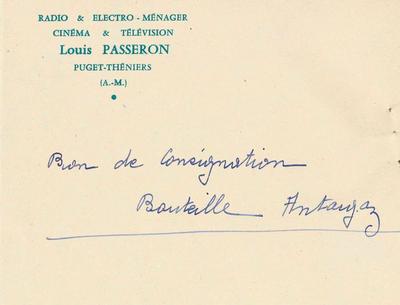 RADIO & ELECTRO-MÉNAGER
CINÉMA & TÉLÉVISION
Louis PASSERON
PUGET-THÉNIERS
(A.-M.)
Bon de Consignation
Bouteille Antargaz